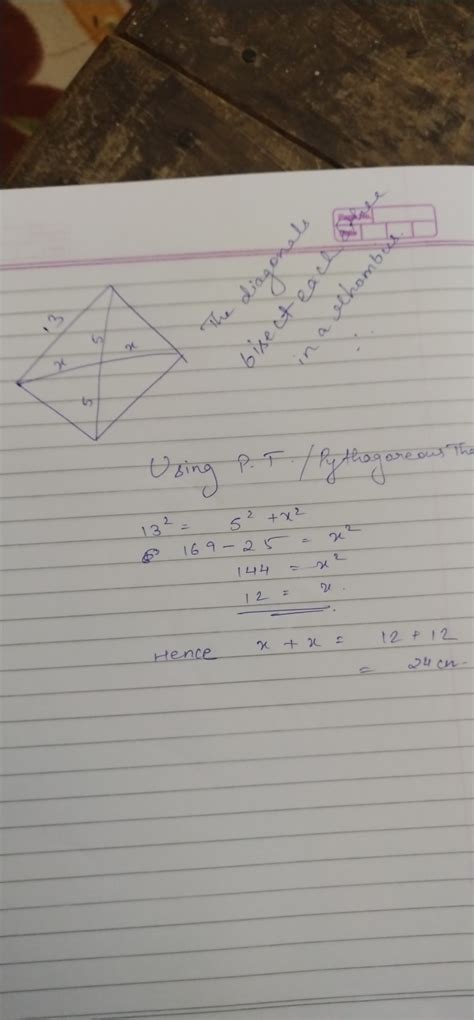 13
5
x
x
5
The diagonals
bisect each
in a rhombus.
Using P.T. / Pythagoreous The
13² = 5² + x²
169 - 25 = x²
144 = x²
12 = x.
Hence x + x = 12 + 12
= 24 cm.